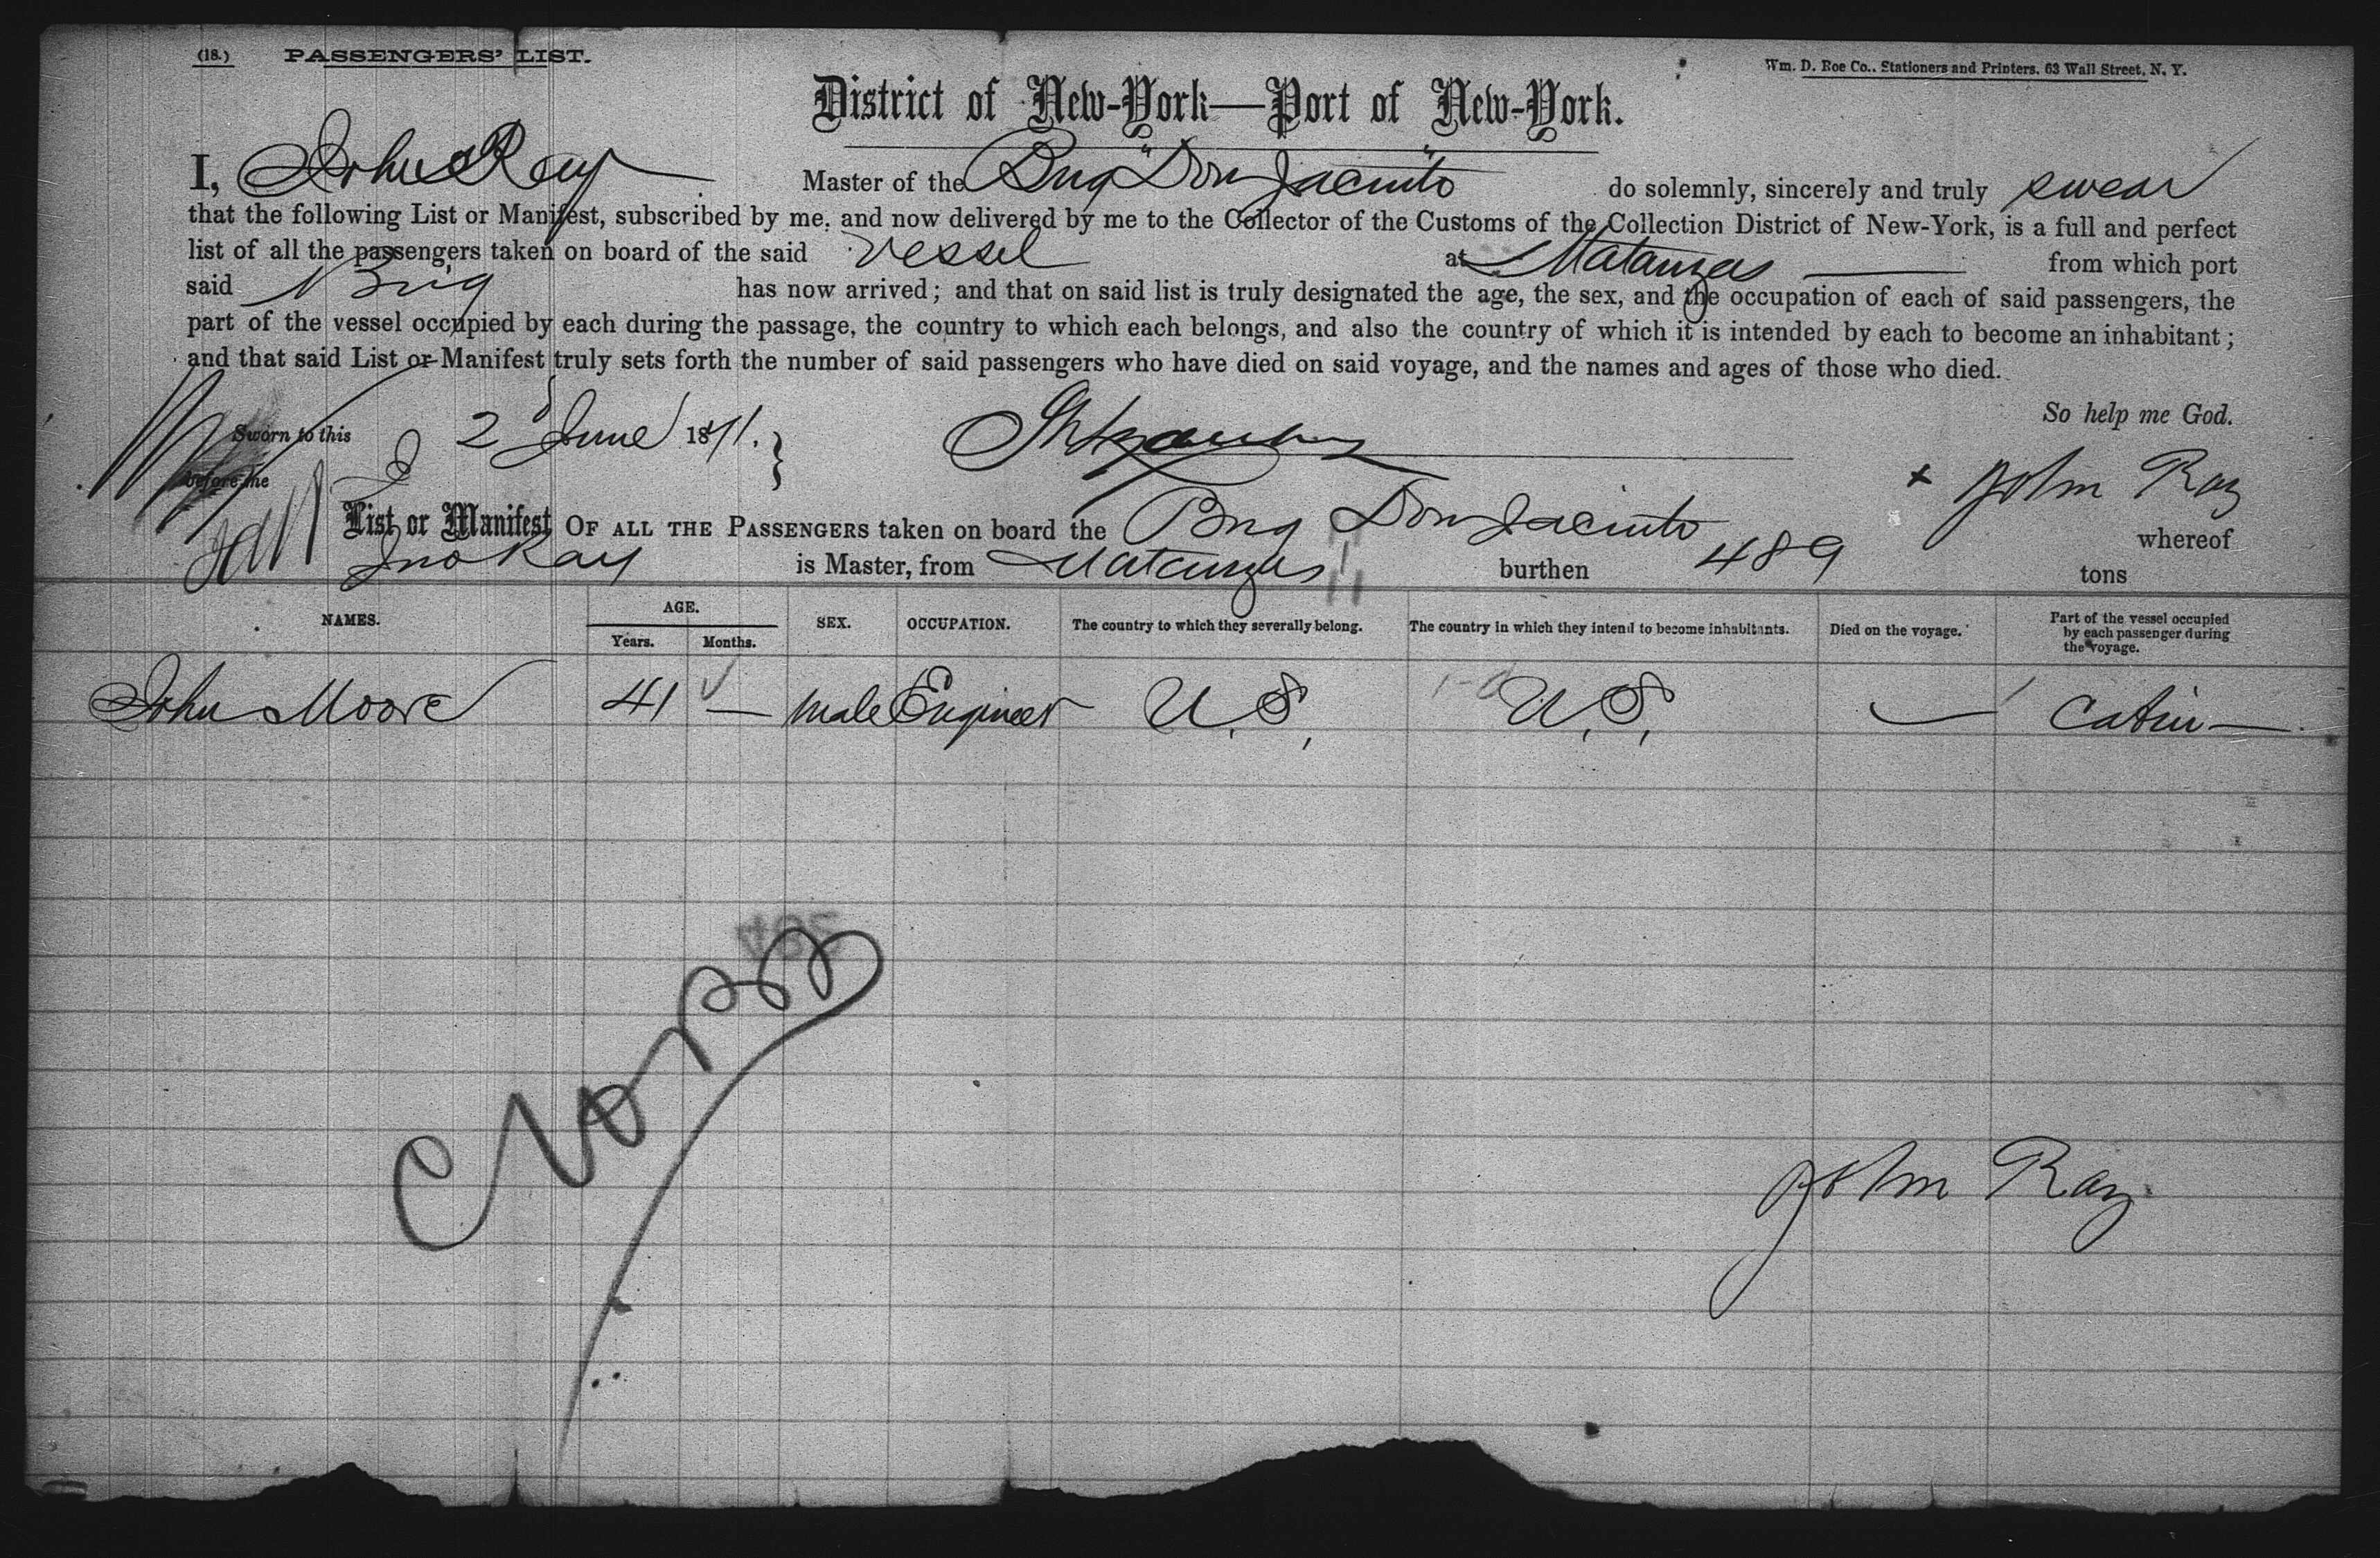 (18.) PASSENGERS' LIST.
Wm. D. Roe Co., Stationers and Printers, 63 Wall Street, N. Y.
District of New-York—Port of New-York.
I, John Ray Master of the Brig "Don Jacinto" do solemnly, sincerely and truly swear
that the following List or Manifest, subscribed by me, and now delivered by me to the Collector of the Customs of the Collection District of New-York, is a full and perfect
list of all the passengers taken on board of the said Vessel at Matanzas from which port
said Brig has now arrived; and that on said list is truly designated the age, the sex, and the occupation of each of said passengers, the
part of the vessel occupied by each during the passage, the country to which each belongs, and also the country of which it is intended by each to become an inhabitant;
and that said List or Manifest truly sets forth the number of said passengers who have died on said voyage, and the names and ages of those who died.
So help me God.
Sworn to this 2 June 18
before me
x John Ray
List or Manifest OF ALL THE PASSENGERS taken on board the Brig Don Jacinto whereof
Jno Ray is Master, from Matanzas burthen 489 tons
NAMES. AGE. Years. Months. SEX. OCCUPATION. The country to which they severally belong. The country in which they intend to become inhabitants. Died on the voyage. Part of the vessel occupied by each passenger during the voyage.
John Moore 41 — male Engineer U.S. U.S. — Cabin —
John Ray